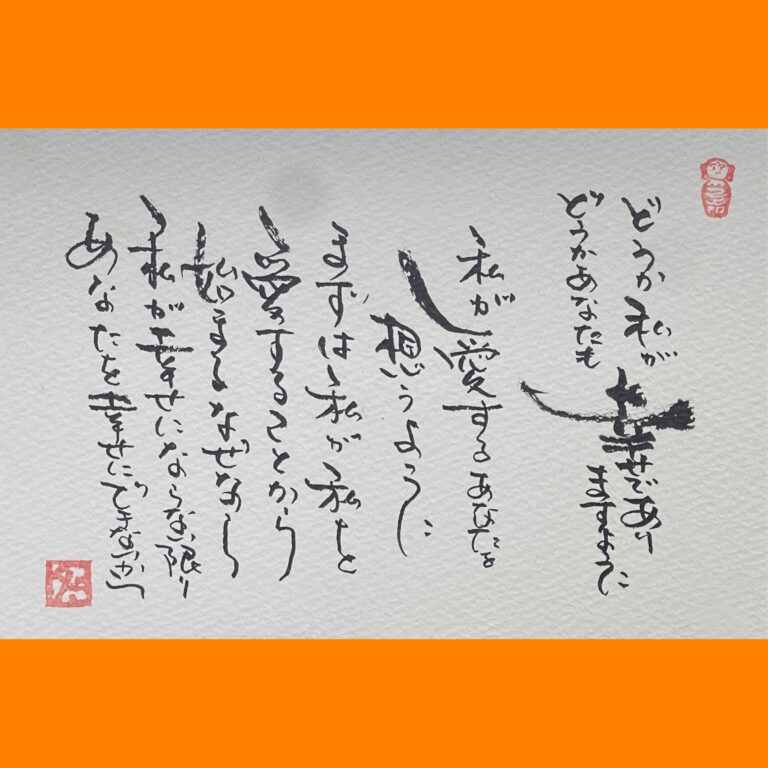 どうか私が
どうかあなたも
幸せであり
ますように
私が愛するあなたを
想うように
まずは私が私を
愛することから
始まるなぜなら
私が幸せにならない限り
あなたを幸せにできないから